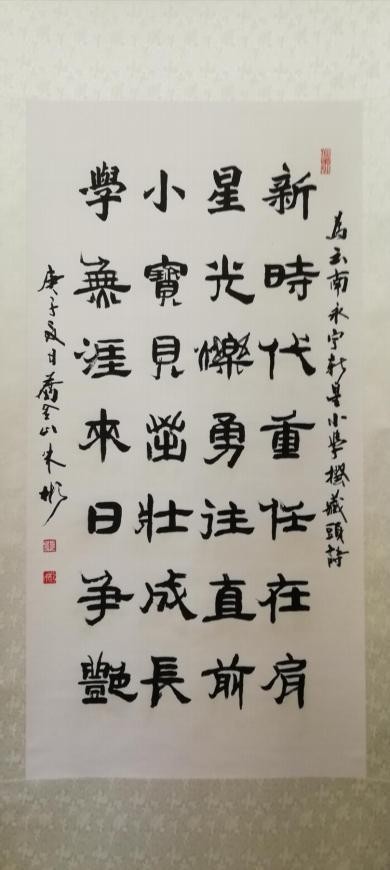 為云南永宁新星小學撰藏頭詩
新時代重任在肩
星光爍勇往直前
小寶貝茁壯成長
學無涯來日争艷
庚子夏日舊金山朱彬